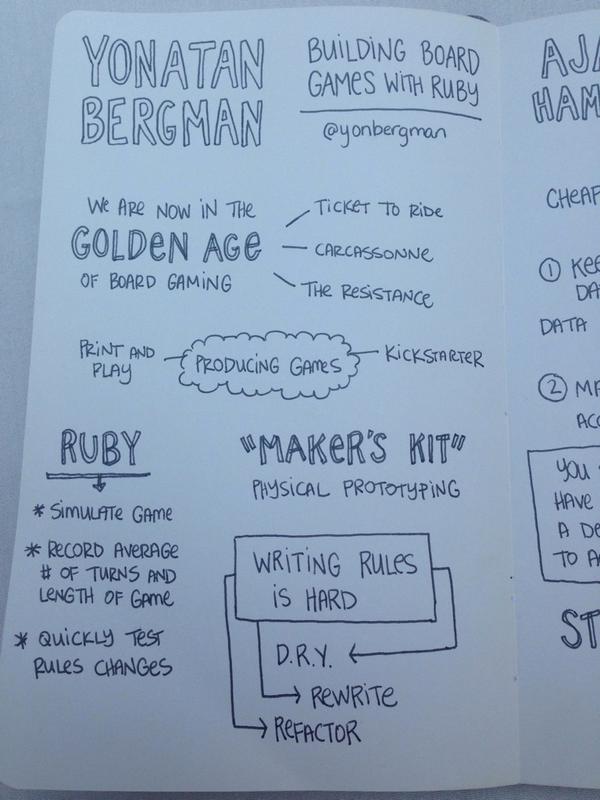 YONATAN
BERGMAN
BUILDING BOARD
GAMES WITH RUBY
@yonbergman
WE ARE NOW IN THE
GOLDEN AGE
OF BOARD GAMING
TICKET TO RIDE
CARCASSONNE
THE RESISTANCE
PRINT AND
PLAY
PRODUCING GAMES
KICKSTARTER
RUBY
* SIMULATE GAME
* RECORD AVERAGE
# OF TURNS AND
LENGTH OF GAME
* QUICKLY TEST
RULES CHANGES
"MAKER'S KIT"
PHYSICAL PROTOTYPING
WRITING RULES
IS HARD
D.R.Y.
REWRITE
REFACTOR
HAM
CHEAP
1
DATA
2
YOU
HAVE
TO